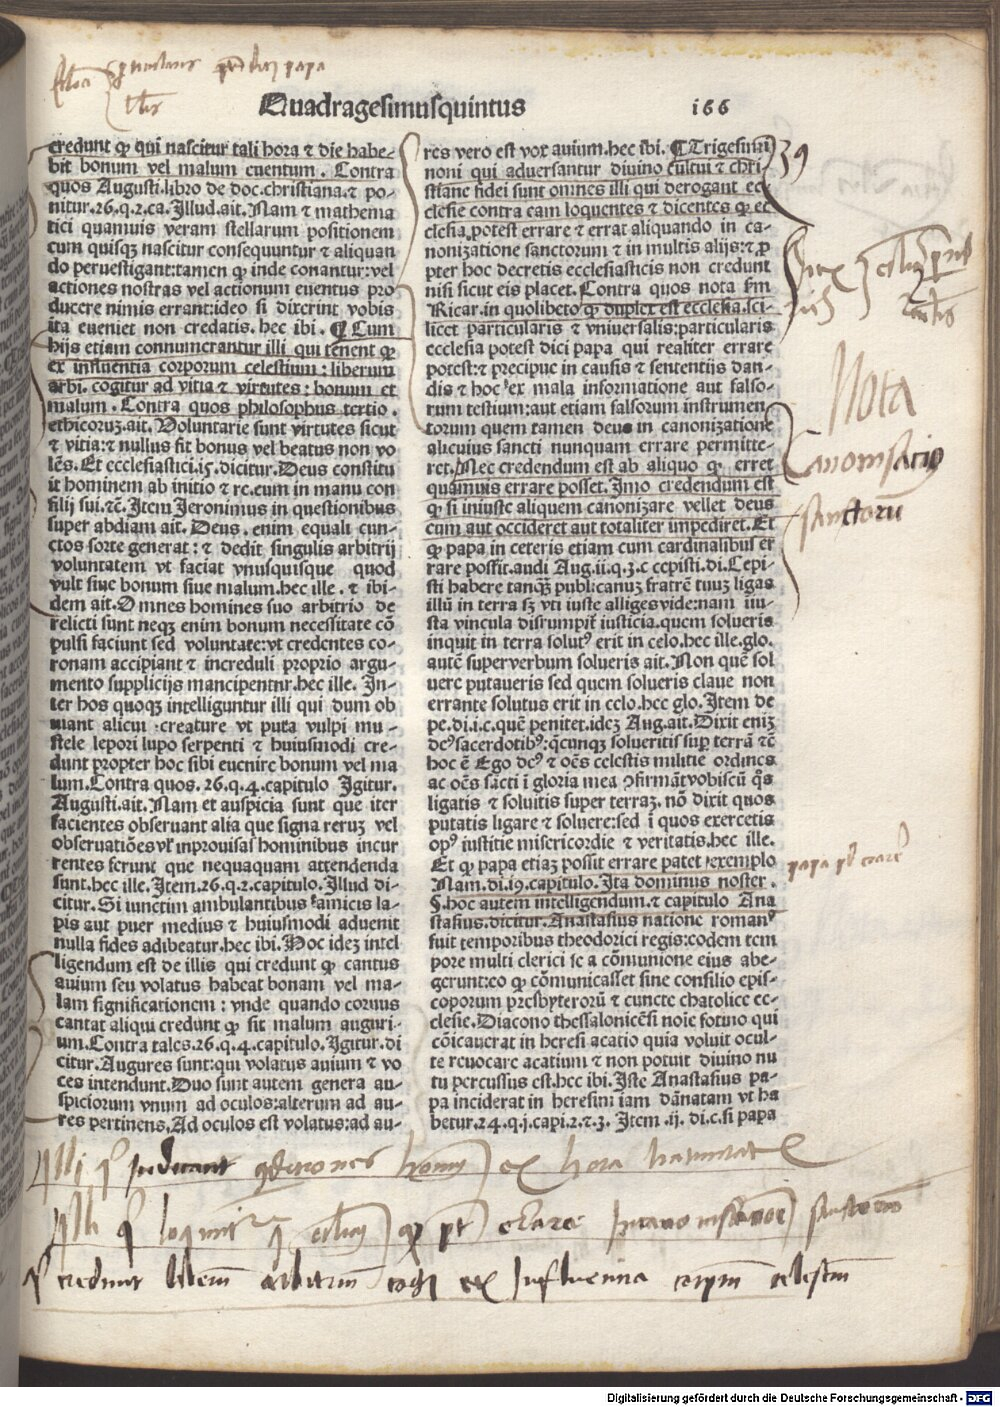 papa
Quadragesimusquintus
166
credunt ꝙ qui nascitur tali hora ⁊ die habe-
bit bonum vel malum euentum . Contra
quos Augusti.libro de doc.christiana.⁊ po-
nitur.26.q.2.ca.Illud.ait.Nam ⁊ mathema
tici quamuis veram stellarum positionem
cum quisqꝫ nascitur consequuntur ⁊ aliquan
do peruestigant:tamen ꝙ inde conantur:vel
actiones nostras vel actionum euentus pro
ducere nimis errant:ideo si dixerint vobis
ita eueniet non credatis. hec ibi. ¶ Cum
hijs etiam connumerantur illi qui tenent ꝙ
ex influentia corporum celestium : liberum
arbi. cogitur ad vitia ⁊ virtutes : bonum et
malum . Contra quos philosophus tertio .
ethicoruꝫ.ait. Voluntarie sunt virtutes sicut
⁊ vitia:⁊ nullus fit bonus vel beatus non vo
lēs. Et ecclesiastici.15.dicitur.Deus constitu
it hominem ab initio ⁊ rc.eum in manu con
silij sui.⁊c. Item Jeronimus in questionibus
super abdiam ait. Deus . enim equali cun-
ctos sorte generat : ⁊ dedit singulis arbitrij
voluntatem vt faciat vnusquisque quod
vult siue bonum siue malum.hec ille . ⁊ ibi-
dem ait.Omnes homines suo arbitrio de
relicti sunt neqꝫ enim bonum necessitate cō
pulsi faciunt sed voluntate:vt credentes co-
ronam accipiant ⁊ increduli proprio argu-
mento supplicijs mancipentnr.hec ille. In-
ter hos quoqꝫ intelliguntur illi qui dum ob
uiant alicui creature vt puta vulpi mu-
stele lepori lupo serpenti ⁊ huiusmodi cre-
dunt propter hoc sibi euenire bonum vel ma
lum.Contra quos. 26.q.4.capitulo Igitur.
Augusti.ait. Nam et auspicia sunt que iter
facientes obseruant alia que signa reruꝫ vel
obseruatiōes vl' inprouisaſ hominibus incur
rentes ferunt que nequaquam attendenda
sunt.hec ille. Item.26.q.2.capitulo. Illud di-
citur. Si iunctim ambulantibus amicis la-
pis aut puer medius ⁊ huiusmodi aduenit
nulla fides adibeatur.hec ibi. Hoc ideꝫ intel
ligendum est de illis qui credunt ꝙ cantus
auium seu volatus habeat bonam vel ma-
lam significationem : vnde quando coruus
cantat aliqui credunt ꝙ sit malum auguri-
um.Contra tales.26.q.4.capitulo. Igitur.di
citur.Augures sunt:qui volatus auium ⁊ vo
ces intendunt.Duo sunt autem genera au-
spiciorum vnum ad oculos:alterum ad au-
res pertinens. Ad oculos est volatus:ad au-
res vero est vox auium.hec ibi. ¶ Trigesimi
noni qui aduersantur diuino cultui ⁊ chri
stiane fidei sunt omnes illi qui derogant ec
clesie contra eam loquentes ⁊ dicentes ꝙ ec
clesia.potest errare ⁊ errat aliquando in ca-
nonizatione sanctorum ⁊ in multis alijs:⁊ ꝓ
pter hoc decretis ecclesiasticis non credunt
nisi sicut eis placet. Contra quos nota scđm
Ricar.in quolibeto ꝙ duplex est ecclesia.sci-
licet particularis ⁊ vniuersalis:particularis
ecclesia potest dici papa qui realiter errare
potest:⁊ precipue in causis ⁊ sententijs dan-
dis ⁊ hoc ex mala informatione aut falso-
rum testium:aut etiam falsorum instrumen
torum quem tamen deus in canonizatione
alicuius sancti nunquam errare permitte-
ret.Nec credendum est ab aliquo ꝙ erret
quamuis errare posset. Imo credendum est
ꝙ si iniuste aliquem canonizare vellet deus
eum aut occideret aut totaliter impediret. Et
ꝙ papa in ceteris etiam cum cardinalibus er
rare possit.audi Aug.ii.q.3.c cepisti.di.Cepi-
sti habere tanqꝫ publicanuꝫ fratrē tuuꝫ ligas
illū in terra sꝫ vti iuste alliges vide:nam iu-
sta vincula disrumpit̄ iusticia.quem solueris
inquit in terra solutꝰ erit in celo.hec ille.glo.
autē super verbum solueris ait. Non quē sol
uere putaueris sed quem solueris claue non
errante solutus erit in celo.hec glo. Item de
pe.di.i.c.quē penitet.ideꝫ Aug.ait. Dixit eniꝫ
deꝰ sacerdotibꝰ:qcunqꝫ solueritis sup̄ terrā ⁊c̄
hoc ē Ego deꝰ ⁊ oēs celestis militie ordines
ac oēs sācti ī gloria mea ꝯfirmāt vobiscū q̄s
ligatis ⁊ soluitis super terraꝫ. nō dixit quos
putatis ligare ⁊ soluere:sed ī quos exercetis
opꝰ iustitie misericordie ⁊ veritatis.hec ille.
Et ꝙ papa etiaꝫ possit errare patet exemplo
Nam.di.19.capitulo. Ita dominus noster .
§. hoc autem intelligendum.⁊ capitulo Ana
stasius.dicitur. Anastasius natione romanꝰ
fuit temporibus theodorici regis:eodem tem
pore multi clerici se a cōmunione eius abe-
gerunt:eo ꝙ cōmunicasset sine consilio epis-
coporum presbyterorū ⁊ cuncte chatolice ec-
clesie.Diacono thessalonicēsi noīe fotino qui
cōīcauerat in heresi acatio quia voluit ocul-
te reuocare acatium ⁊ non potuit diuino nu
tu percussus est.hec ibi. Iste Anastasius pa-
pa inciderat in heresim iam dānatam vt ha
betur.24.q.i.capi.2.⁊.3. Item .ij. di.c.si papa
39
Nota
Canonisatio
sanctorū
papa
Digitalisierung gefördert durch die Deutsche Forschungsgemeinschaft - DFG